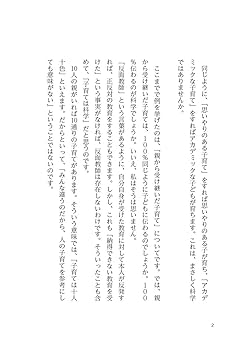 同じように、「思いやりのある子育て」をすれば思いやりのある子が育ち、「アカデ
ミックな子育て」をすればアカデミックな子どもが育ちます。これは、まさしく科学
ではありませんか。
ここまでで例を挙げたのは、「親から受け継いだ子育て」についてです。では、親
から受け継いだ子育ては、100％同じように子どもに伝わるのでしょうか。100
％伝わるのが科学でしょうか。いいえ、私はそうは思いません。
「反面教師」という言葉があるように、自分自身が受けた教育に対して本人が反発す
れば、正反対の教育をすることもできます。しかし、これも「納得できない教育を受
けた」という事実がなければ、反面教師は存在しないわけです。そういったことも含
めて、「子育ては科学だ」と思うのです。
10人の親がいれば10通りの子育てがあります。そういう意味では、「子育ては十人
十色」といえます。だからといって、「みんな違うのだから、人の子育てを参考にし
ても意味がない」ということではないのです。
2